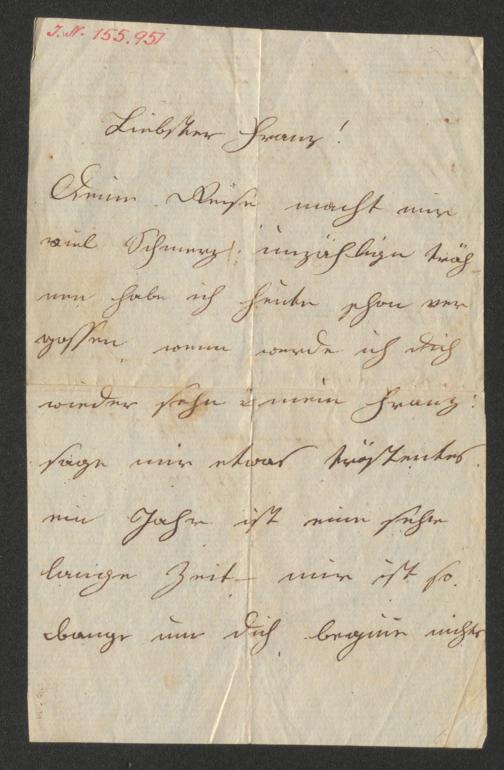 J. N. 155.951
Liebster Franz!
Deine Reise macht mir
viel Schmerz, unzählige träh-
nen habe ich heute schon ver
gossen wenn werde ich dich
wieder sehn mein Franz:
sage mir etwas tröstentes
ein Jahr ist eine sehr
lange Zeit – mir ist so
bange um dich beginne nichts